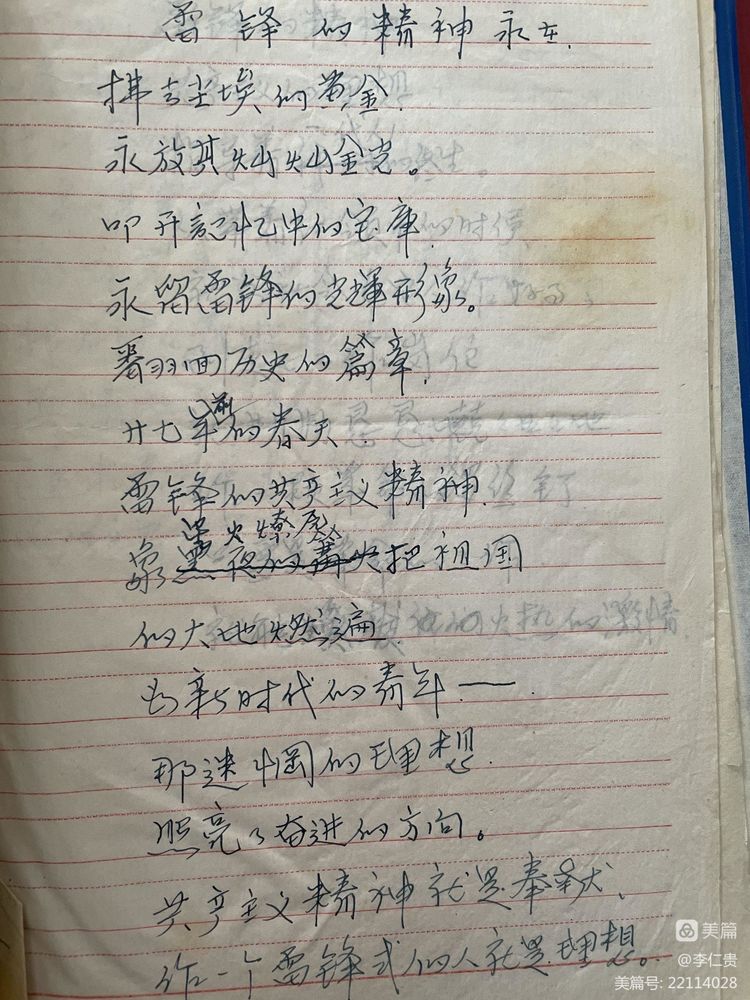 雷锋的精神永在.
拂去尘埃的黄金.
永放其灿灿金光。
叩开記忆中的宝庫.
永留雷锋的光輝形象。
番羽回历史的篇章.
前
廿七年的春天
雷锋的共产主义精神.
火燎原
象黑夜的火把祖国
的大地燃遍
为新时代的青年——
那迷惘的理想
照亮了奋进的方向。
共产主义精神就是奉献、
作一个雷锋式的人就是理想。
美篇
@李仁贵
美篇号: 22114028